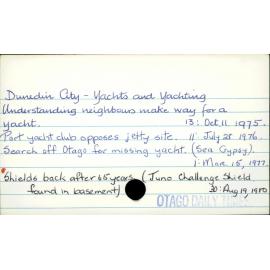 Dunedin City - Yachts and Yachting
Understanding neighbours make way for a
yacht. 13: Oct. 11. 1975.
Port yacht club opposes jetty site. 11: July 28 1976.
Search off Otago for missing yacht. (Sea Gypsy).
1: Mar. 15, 1977.
Shields back after 65 years. (Juno Challenge Shield
found in basement) 30: Aug 19, 1980
OTAGO DAILY TIMES